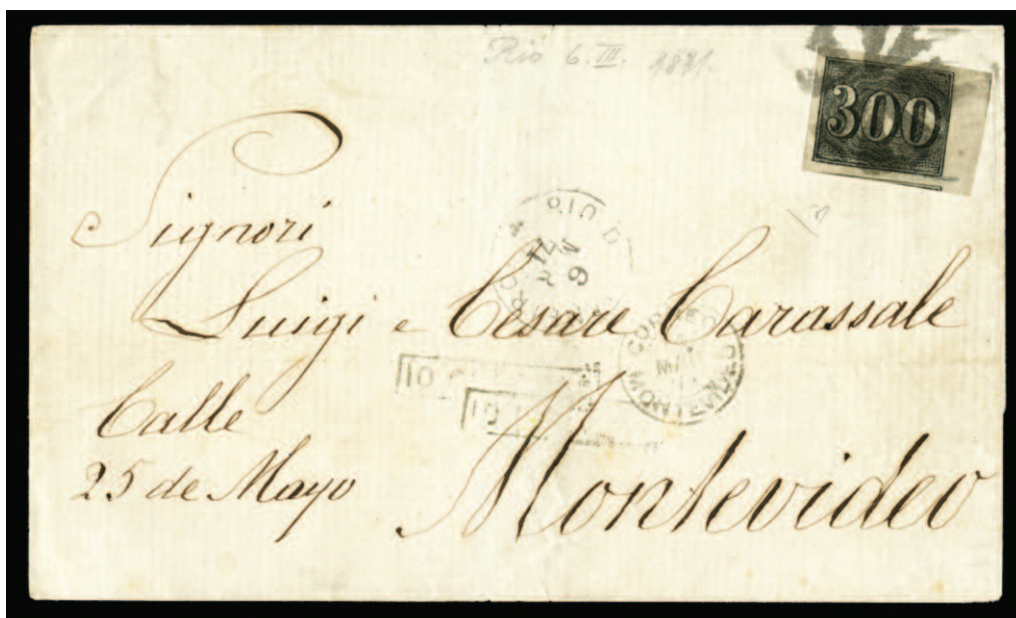 Rio 6. III. 1871.
300
Signori
Luigi e Cesare Carassale
Calle
25 de Mayo
Montevideo
RIO D
6
71
CORREO
MONTEVIDEO
10
10